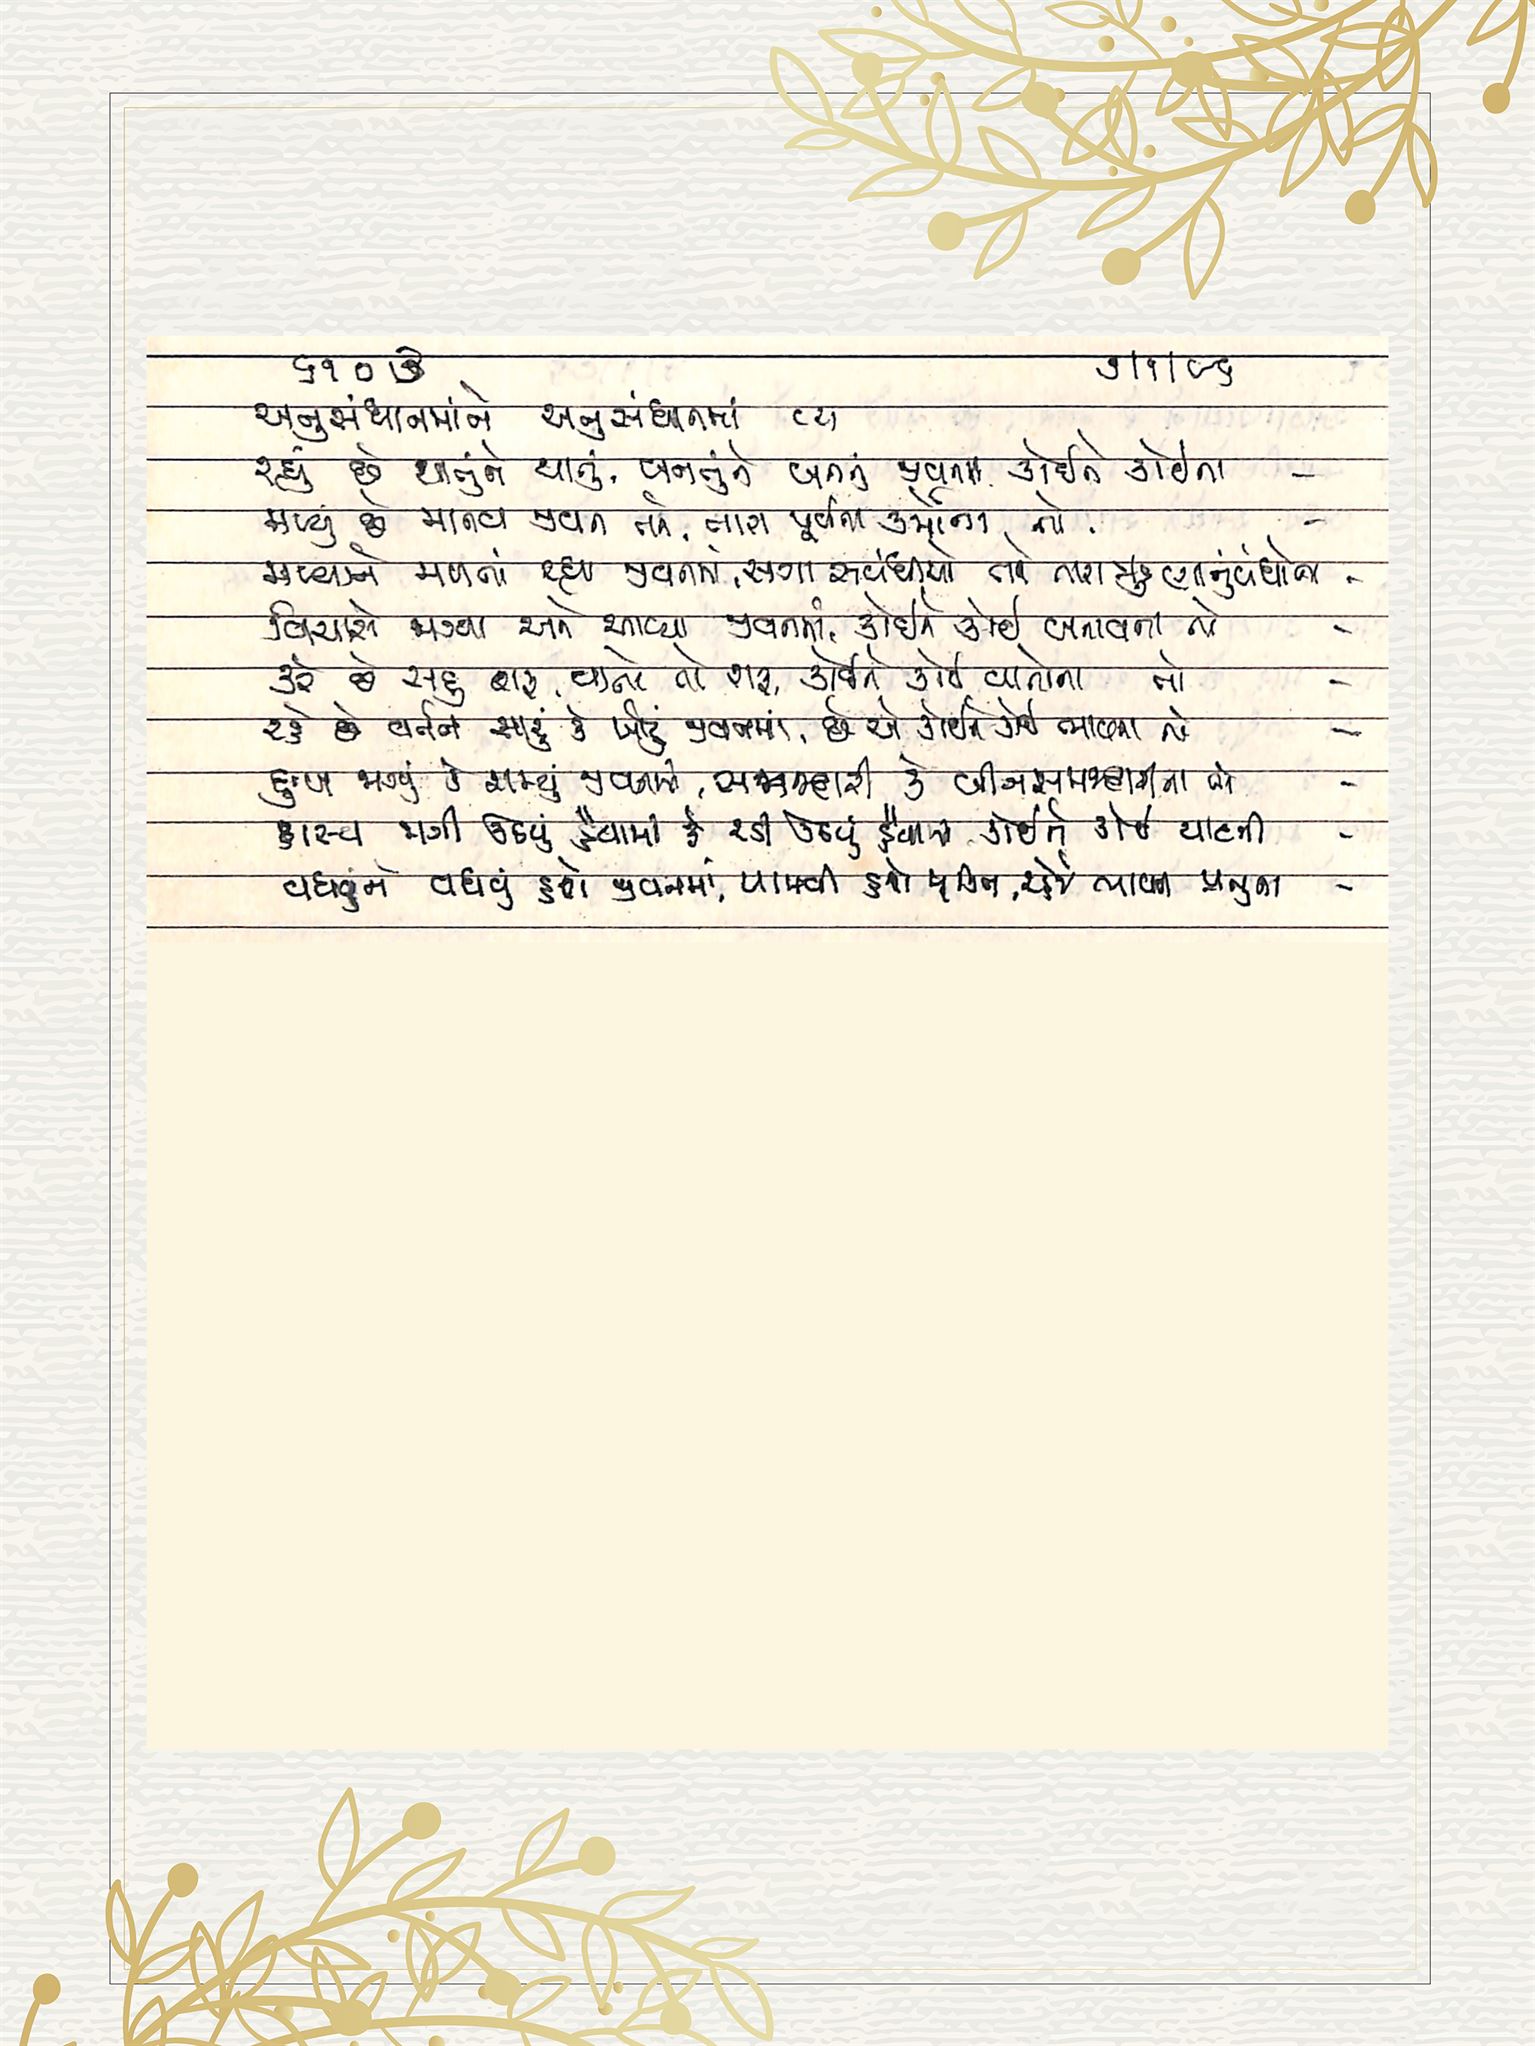 ૬૧૦૭ ૭/૧/૯૬
અનુસંધાનમાંને અનુસંધાનમાં
રહ્યું છે થાતુંને થાતું, બનતુંને બનતું જીવનમાં કોઈને કોઈના -
મળ્યું છે માનવ જીવન તને, તારા પૂર્વના કર્મોના તો. -
મળ્યાને મળતાં રહ્યા જીવનમાં, સગા સંબંધીઓ તને તારા ઋણાનુંબંધોના -
વિચારો જાગ્યા અને આવ્યા જીવનમાં, કોઈને કોઈ બનાવના તો -
કરે છે સહુ શરૂ, વાતો તો શરૂ, કોઈને કોઈ વાતોના તો -
રહે છે વર્તન સારું કે ખોટું જીવનમાં, છે એ કોઈને કોઈ ભાવના તો -
દુઃખ જાગ્યું કે શમ્યું જીવનમાં, સમજદારી કે બીનસમજદારીના તો -
હાસ્ય જાગી ઉઠયું હૈયામાં કે રડી ઉઠયું હૈયામાં કોઈને કોઈ યાદની -
વધવુંને વધવું હશે જીવનમાં, પામવી હશે મંઝિલ, રહેજે ભાવમાં પ્રભુના -